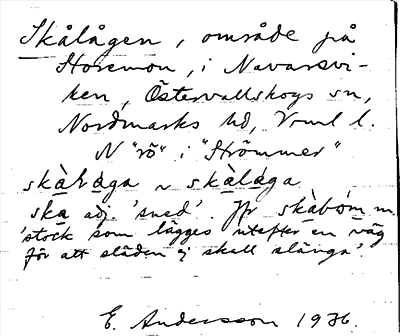 Skålågen, område på
Storemon, i Navarsvi-
ken, Östervallskogs sn,
Nordmarks hd, Vrml l.
N "rö" i "Strömmer"
skàlàga ~ skàlaga
ska adj. 'sned'. Jfr skàbóm m.
'stock som lägges utefter en väg
för att släden ej skall slänga'.
E. Andersson 1936.